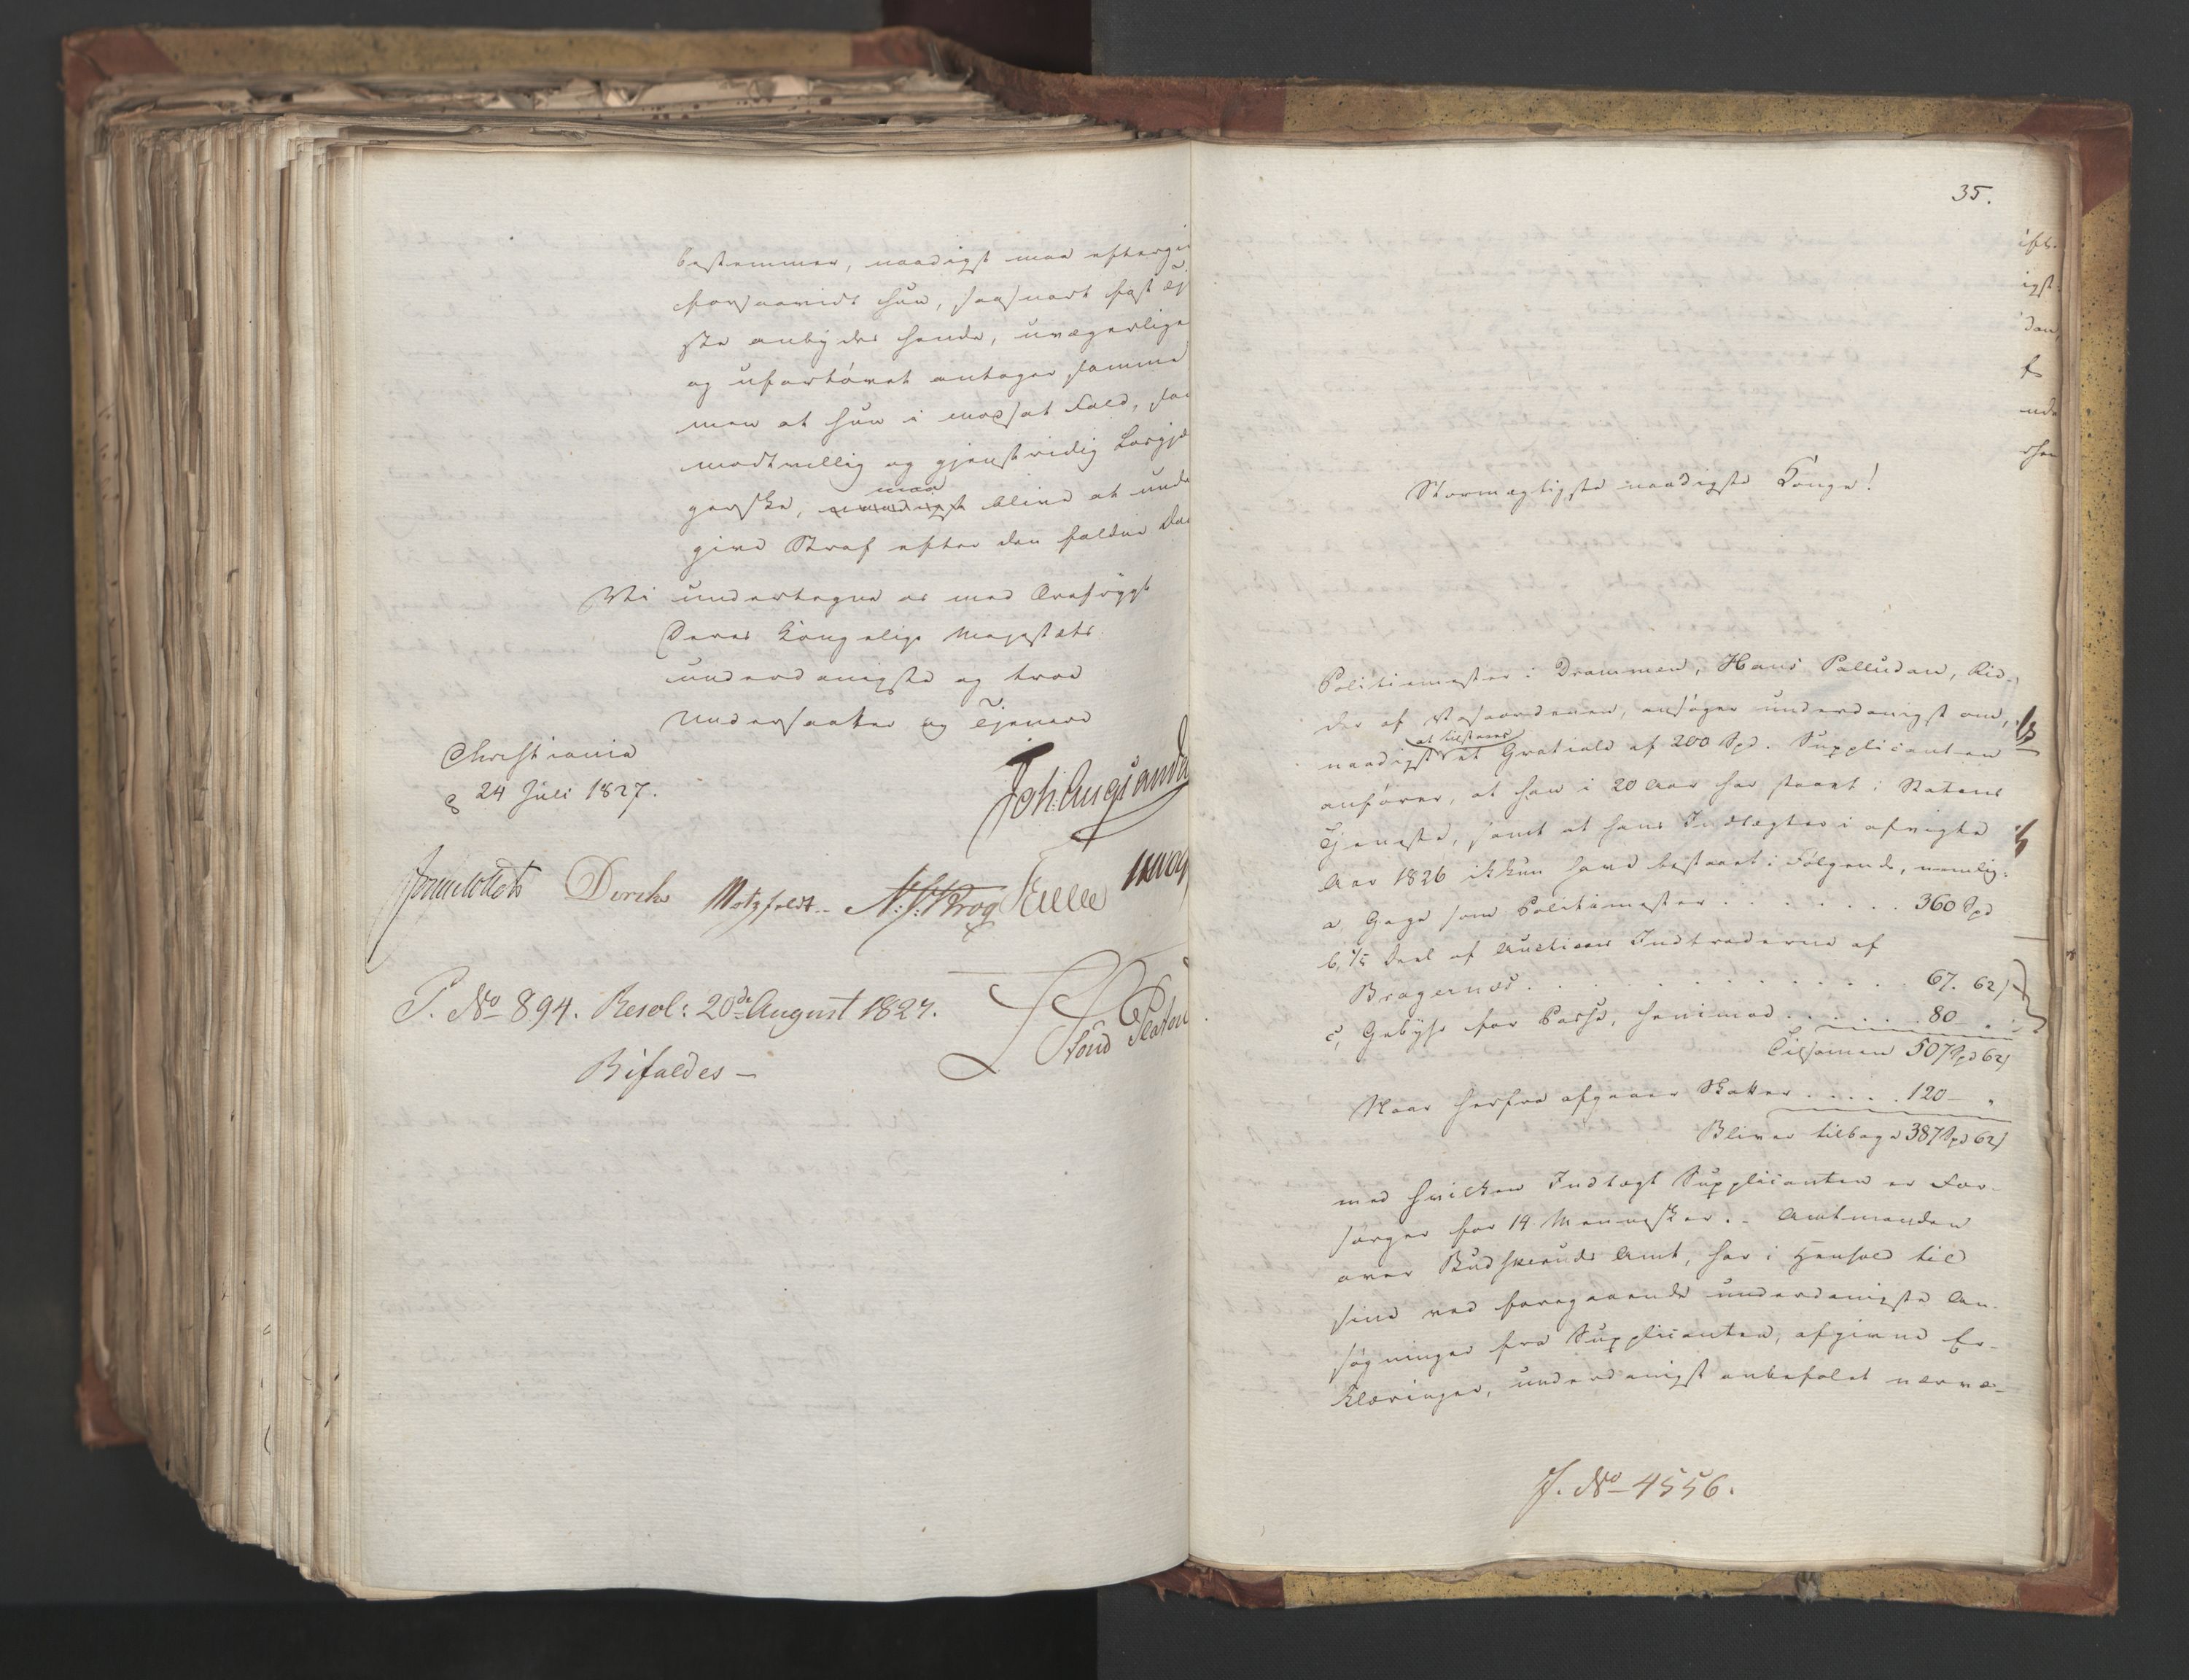 bestemmer, naadigst maa eftergi
forsaavidt hun, saasnart fast Tj
ste anbydes hende, uvægerligen
og ufortøvet antager samme
men at hun i modsat Fald, som
modtvillig og gjenstridig Løsgjæ
gerske, naadigst maa blive at unde
give Straf efter den faldne Do
Vi undertegne os med Ærefrygt
Deres Kongelige Majestæts
underdanigste og troe
Undersaatter og Tjenere
Christiania
d 24 Juli 1827.
Joh: Aug: Sandels
Sommerhielm Diriks Motzfeldt N: J: Krog Collett
P. No 894. Resol: 20de August 1827.
Bifaldes –
35.
Stormægtigste naadigste Konge!
Politiemester i Drammen, Hans Palludan, Rid-
der af Vasaordenen, ansøger underdanigst om,
naadigst at tilstaaes et Gratiale af 200 Spd. Supplicanten
anfører, at han i 20 Aar har staaet i Statens
Tjeneste, samt at hans Indtægter i afvigte
Aar 1826 ikkun have bestaaet i Følgende, nemlig:
a, Gage som Politimester . . . . . . . 360 Spd
b, 1/5 Deel af Auctions Indtræderne af
Bragernæs . . . . . . . . . . . . . 67. 62 s
c, Gebyhr for Passe, henimod . . . . . . 80 „
Tilsammen 507 Spd 62 s
Naar herfra afgaaer Skatter . . . . . 120 – „
Bliver tilbage 387 Spd 62 s
med hvilken Indtægt Supplicanten er For-
sørger for 14 Mennesker. – Amtmanden
over Budskeruds Amt, har i Henhold til
sine ved foregaaende underdanigste An-
søgninger fra Supplicanten, afgivne Er-
klæringer, underdanigst anbefalet nærvæ-
J. No 4556.